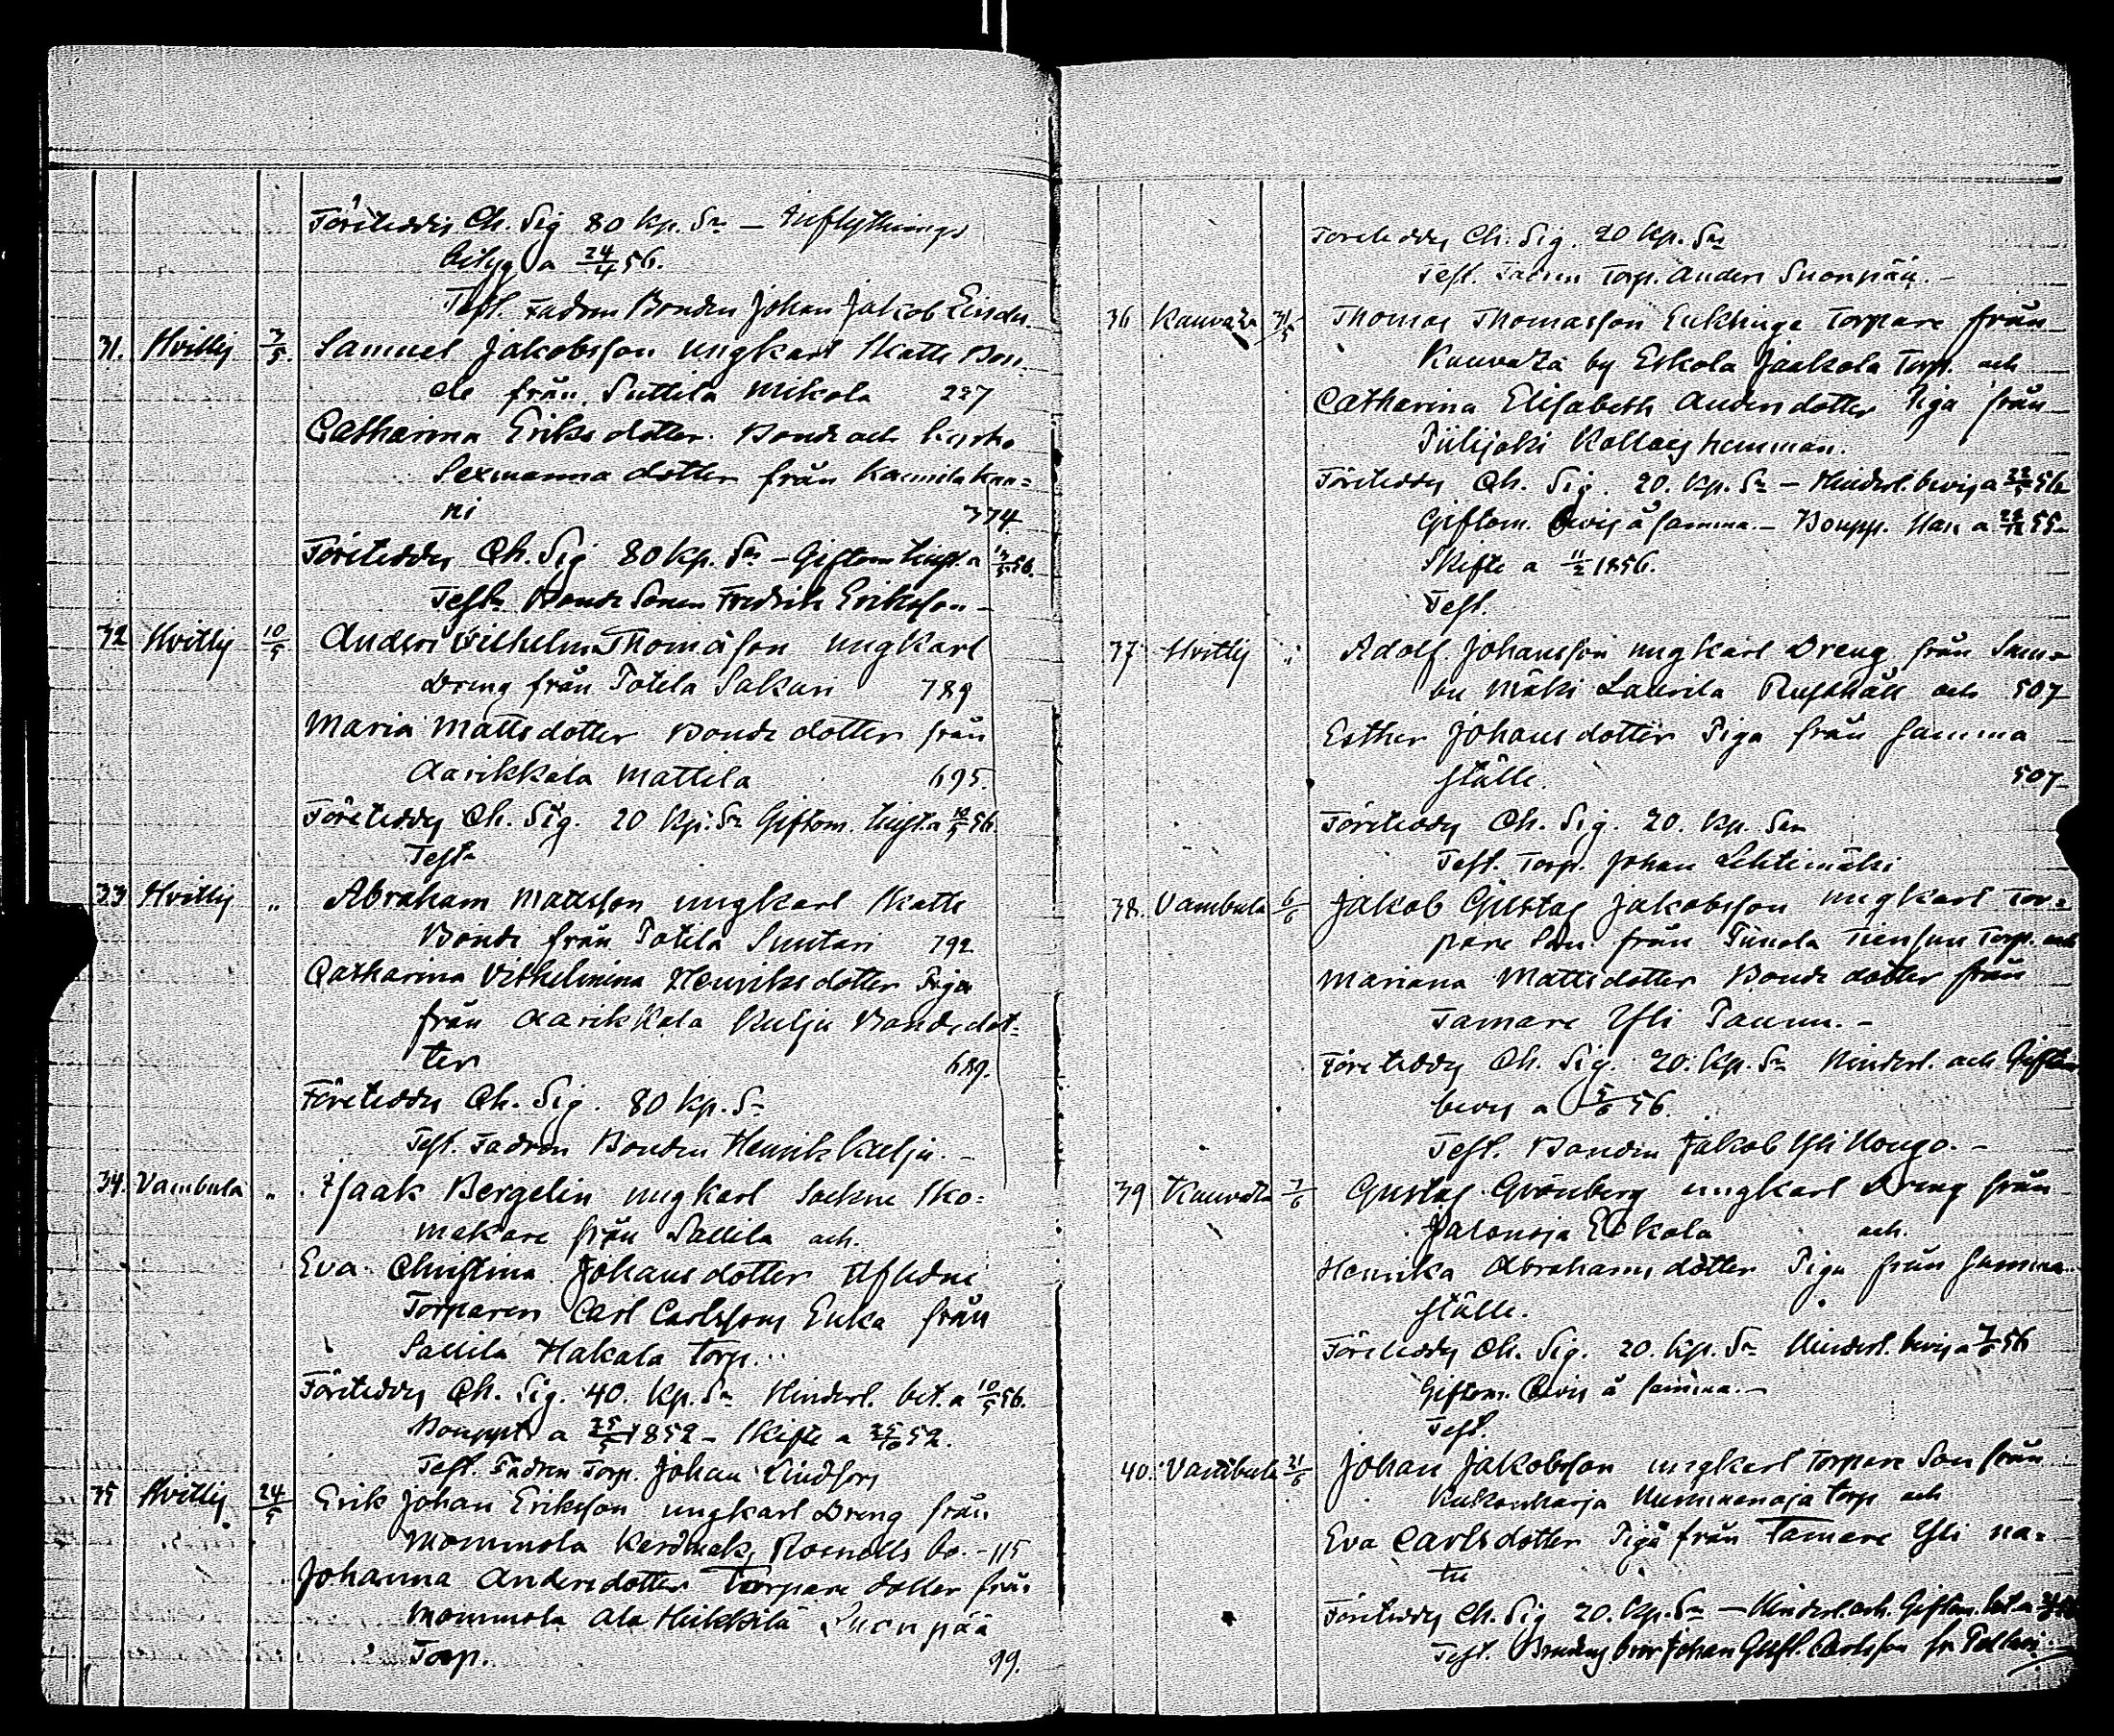 Företeddes Ch. Sig 80 Kp. Sr – Inflyttnings
betyg a 24/4 56.
Test. Fadren Bonden Johan Jakob
31. Hvittis 3/5. Samuel Jakobsson ungkarl Skatte Bon-
de från Suttila Mikola 227
Catharina Eriksdotter Bonde och Kyrko
Sexmanna dotter från
ni 374
Företeddes Ch. Sig 80 Kp. Sr – Giftom. a 13/5 56.
Test. Bonde Sonen Fredrik Eriksson –
32 Hvittis 10/5 Anders Vilhelm Thomasson ungkarl
Dreng från Potila Sakari 789
Maria Mattsdotter Bonde dotter från
Aarikkala Mattila 695.
Företeddes Ch. Sig. 20 Kp. Sr Giftom. a 10/5 56.
Test.
33 Hvittis " Abraham Mattsson ungkarl Skatte
Bonde från Potila Suutari 792
Catharina Vilhelmina Henriksdotter Piga
från Aarikkala Kulju Bonde dot-
ter 689.
Företeddes Ch. Sig. 80 Kp. Sr
Test. Fadren Bonden Henrik Kulju. –
34. Vambula " Isaak Bergelin ungkarl Sockne Sko-
makare från Sallila och
Eva Christina Johansdotter Afledne
Torparen Carl Carlssons Enka från
Sallila Hakala torp.
Företeddes Ch. Sig. 40. Kp. Sr Hinderl. bet. a 10/5 56.
Bouppt. a 25/5 1852 – Skifte a 52.
Test. Fadren Torp. Johan Lindfors
35 Hvittis 24/5 Erik Johan Eriksson ungkarl Dreng från
Mommola bo. – 115
Johanna Andersdotter Torpare dotter från
Mommola Ala Heikkilä Suonpää
Torp. 99.
Företeddes Ch. Sig. 20 Kp. Sr
Test. Fadren Torp. Anders Suonpää. –
36 Kauvatsa 31/5 Thomas Thomasson Enkling Torpare från
Kauvatsa by Eskola Jaakola Torp. och
Catharina Elisabeth Andersdotter Piga från
Piilijoki hemman.
Företeddes Ch. Sig. 20. Kp. Sr – Hinderl. bevis a 56
Giftom. bevis å samma. – Boupp. a 55 –
Skifte a 11/2 1856.
Test.
37 Hvittis " Adolf Johansson ungkarl Dreng från Sam-
bu Mäki Laurila Rusthåll och 507
Esther Johansdotter Piga från samma
ställe. 507
Företeddes Ch. Sig. 20. Kp. Sr
Test. Torp. Johan Lehtimäki
38. Vambula 6/6 Jakob Gustaf Jakobsson ungkarl Tor-
pare Son från Torp. och
Mariana Mattsdotter Bonde dotter från
Tamare Yli Paunu. –
Företeddes Ch. Sig. 20. Kp. Sr Hinderl. och Giftom
bevis a 5/6 56.
Test. Bonden Jakob Yli Hongo. –
39 Kauvatsa 7/6 Gustaf Grönberg ungkarl Dreng från
Jalonoja Eskola och
Henrika Abrahamsdotter Piga från samma
ställe.
Företeddes Ch. Sig. 20. Kp. Sr Hinderl. bevis a 7/6 56
Giftom. bevis å samma. –
Test.
40. Vambula 21/6 Johan Jakobsson ungkarl Torpare Son från
Kukonharja torp och
Eva Carlsdotter Piga från Tamare Yli na-
tu
Företeddes Ch. Sig 20. Kp. Sr – Hinderl. och Giftom. bet. a
Test. Brudens bror Johan Gust. Carlsson fr.